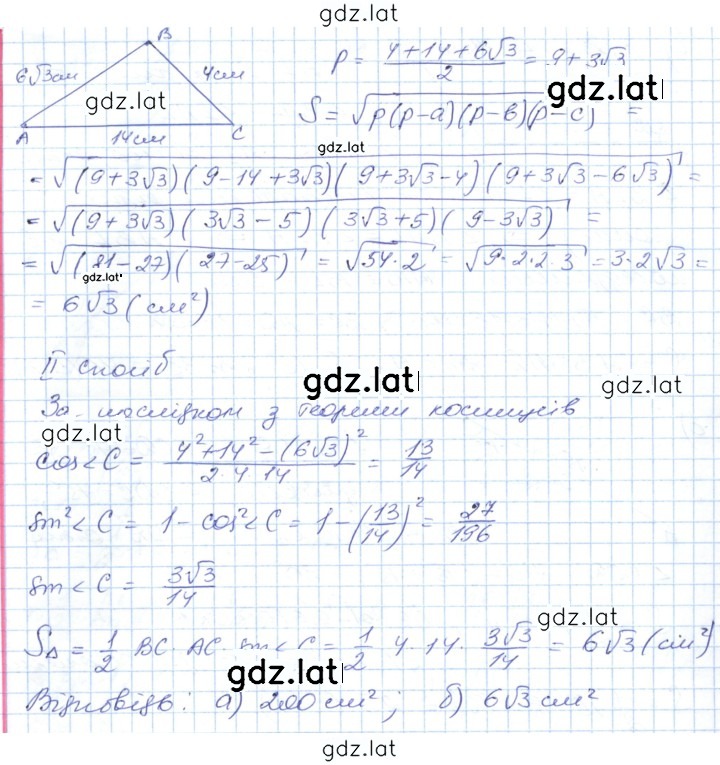 gdz.lat
B
6√3 см
4 см
gdz.lat
A
14 см
C
p = (4+14+6√3)/2 = 9+3√3
gdz.lat
S = √(p(p-a)(p-в)(p-c)) =
gdz.lat
= √((9+3√3)(9-14+3√3)(9+3√3-4)(9+3√3-6√3)) =
= √((9+3√3)(3√3-5)(3√3+5)(9-3√3)) =
= √((81-27)(27-25)) = √(54·2) = √(9·2·2·3) = 3·2√3 =
gdz.lat
= 6√3 (см²)
II спосіб
gdz.lat
gdz.lat
За наслідком з теореми косинусів
gdz.lat
cos<C = (4²+14²-(6√3)²)/(2·4·14) = 13/14
sin²<C = 1-cos²<C = 1-(13/14)² = 27/196
sin<C = 3√3/14
gdz.lat
S△ = 1/2 BC·AC·sin<C = 1/2·4·14·3√3/14 = 6√3 (см²)
gdz.lat
Відповідь: а) 200 см²; б) 6√3 см²
gdz.lat